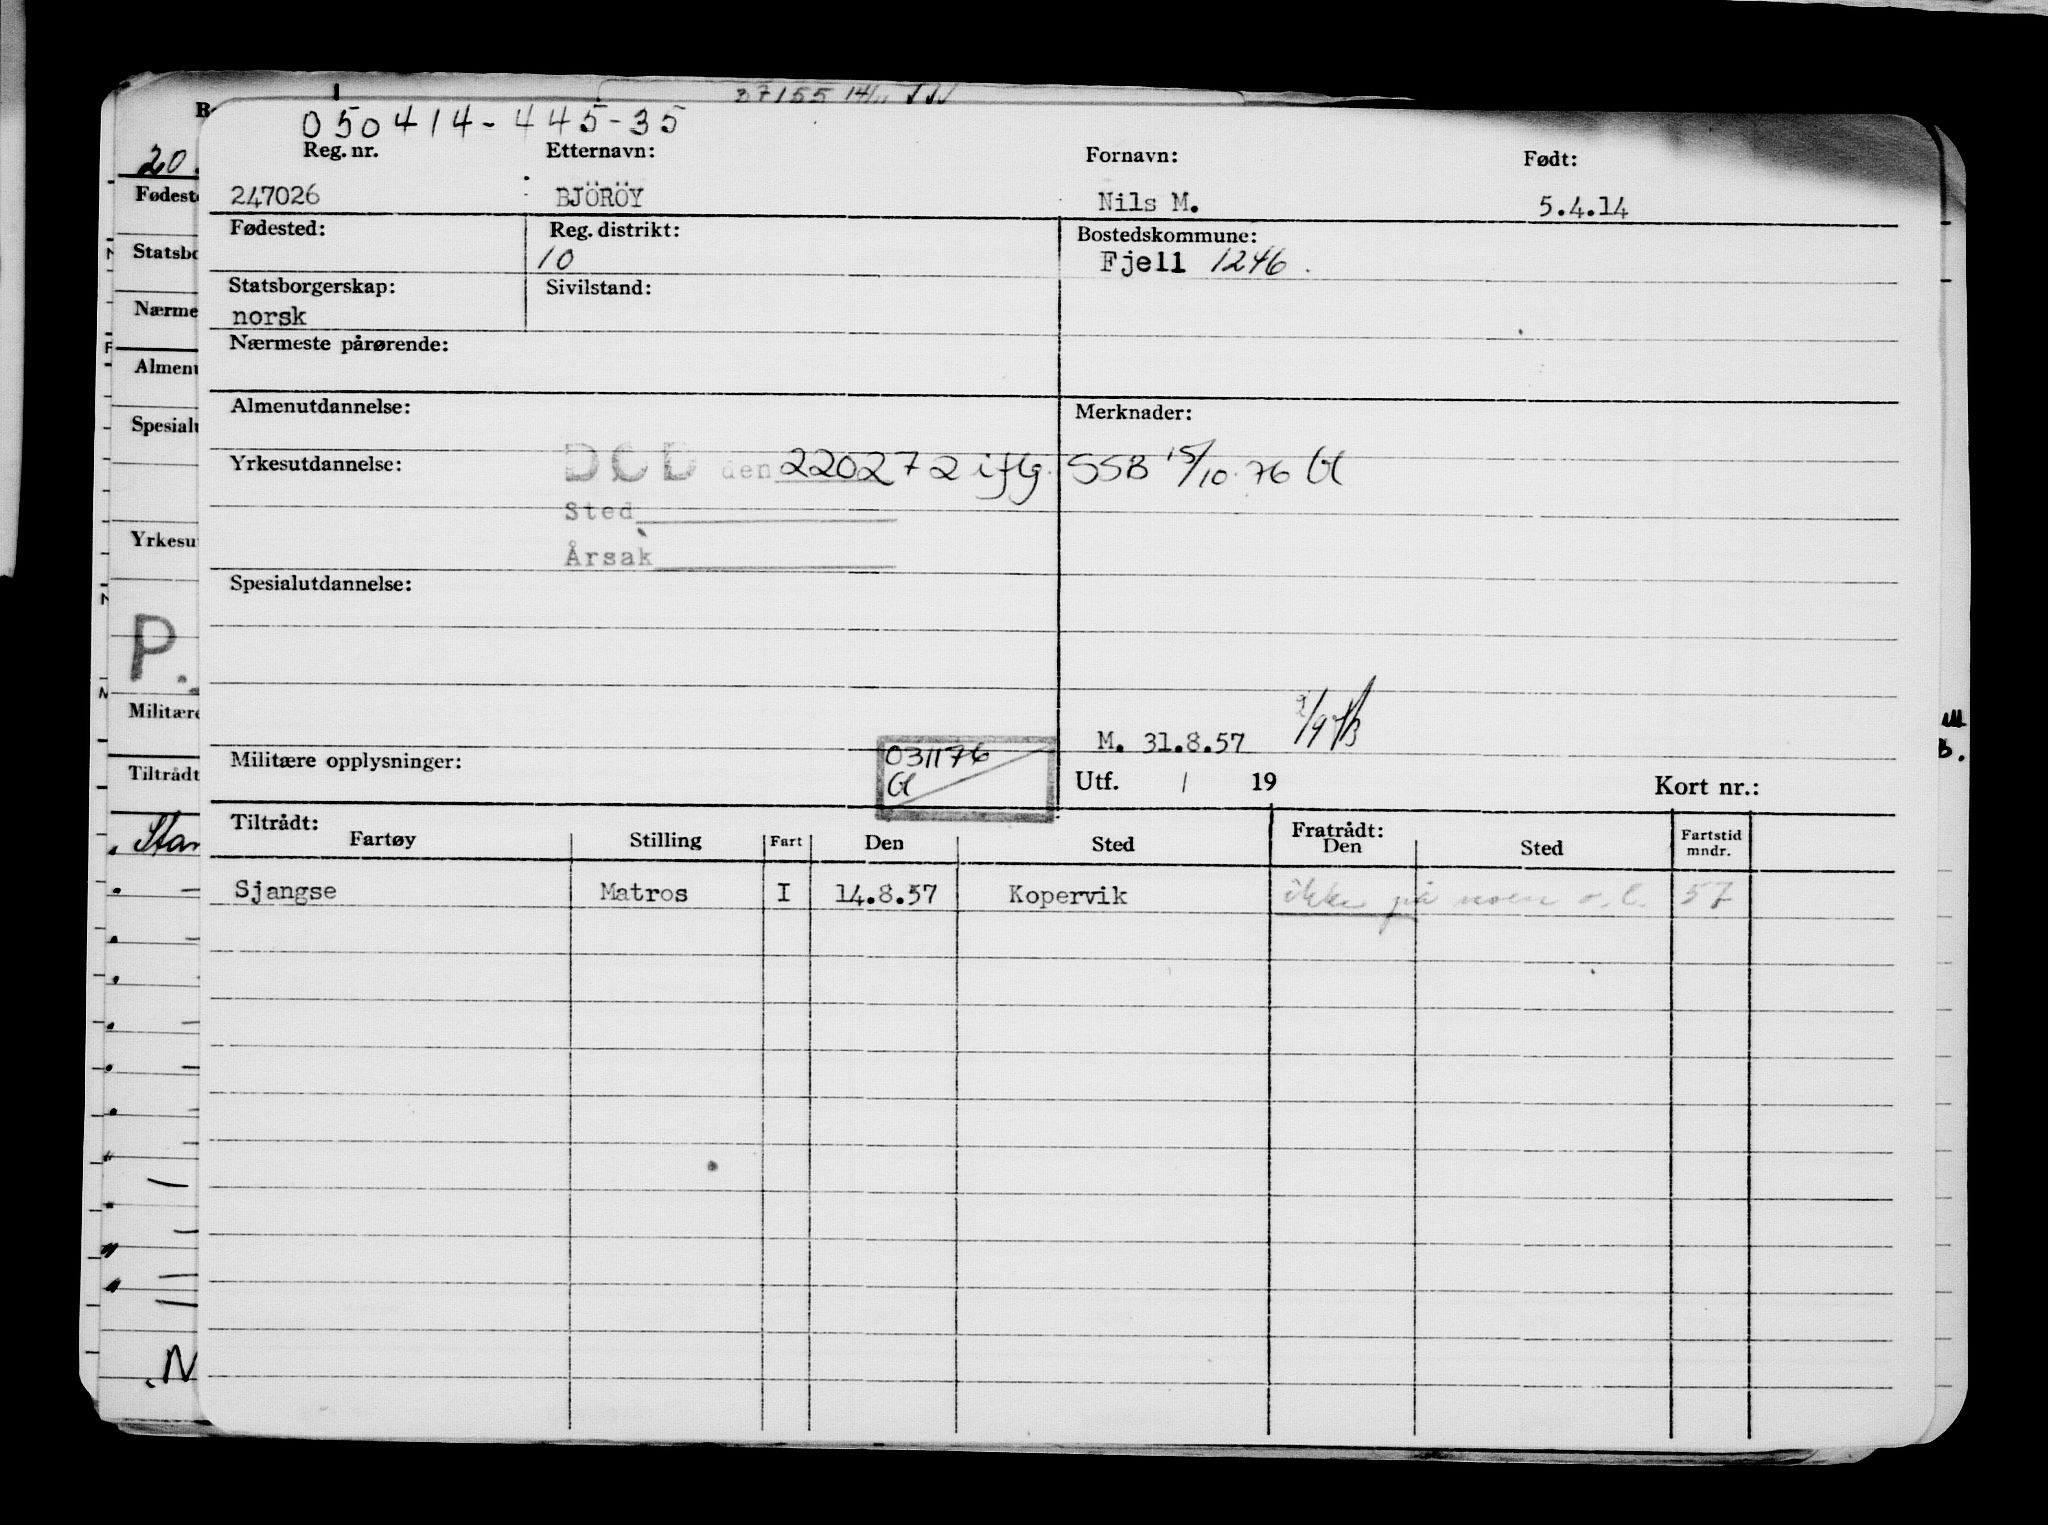 37155 14/11
050414-445-35
Reg. nr. Etternavn: Fornavn: Født:
247026 BJÖRÖY Nils M. 5.4.14
Fødested: Reg. distrikt: Bostedskommune:
10 Fjell 1246.
Statsborgerskap: Sivilstand:
norsk
Nærmeste pårørende:
Almenutdannelse: Merknader:
Yrkesutdannelse: DÖD den 220272 iflg. SSB 15/10.76 Gl
Sted
Årsak
Spesialutdannelse:
M. 31.8.57 2/9
Militære opplysninger: 031176 Utf. / 19 Kort nr.:
Gl
Tiltrådt: Fratrådt:
Fartøy Stilling Fart Den Sted Den Sted Fartstid mndr.
Sjangse Matros I 14.8.57 Kopervik ikke på noen o.l. 57
20
Fødest
Statsbo
Nærme
Almenu
Spesialu
Yrkesu
P.
Militære
Tiltrådt
Star
N